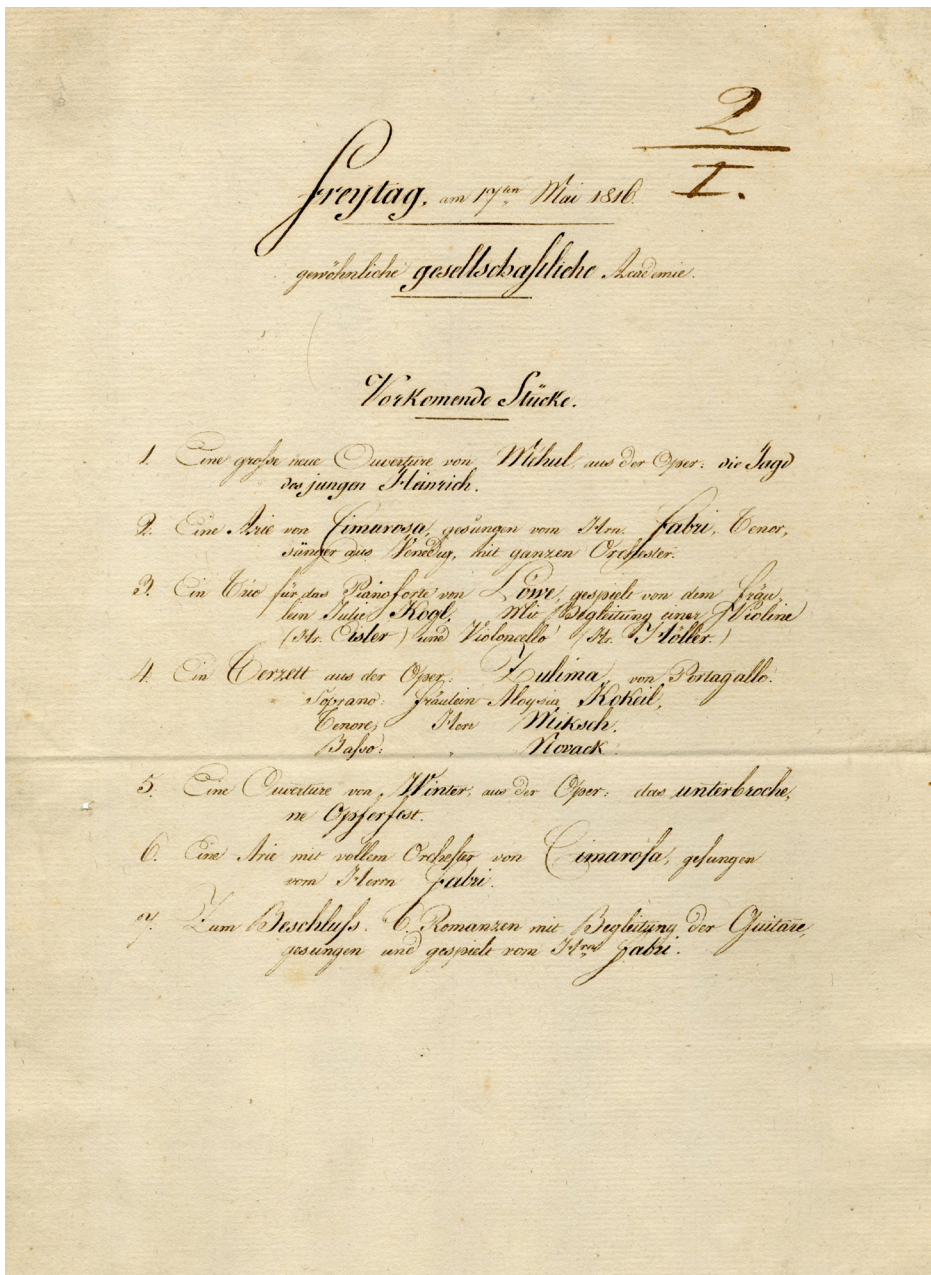 2
I.
Freytag, am 17ten Mai 1816.
gewöhnliche gesellschaftliche Academie.
Vorkomende Stücke.
1. Eine große neue Ouverture von Mehul, aus der Oper: die Jagd
des jungen Heinrich.
2. Eine Arie von Cimarosa, gesungen vom Hrn. Fabri, Tenor,
sänger aus Venedig, mit ganzen Orchester.
3. Ein Trio für das Pianoforte von Löwe, gespielt von dem Fräu,
lein Julie Kogl. Mit Begleitung einer Violine
(Hr. Eisler) und Violoncello (Hr. Höller.)
4. Ein Terzett aus der Oper: Zulima, von Portagallo.
Soprano: Fräulein Aloysia Kokeil,
Tenore, Herr Miksch.
Basso: " Novack.
5. Eine Ouverture von Winter, aus der Oper: das unterbroche,
ne Opferfest.
6. Eine Arie mit vollem Orchester von Cimarosa, gesungen
vom Herrn Fabri.
7. Zum Beschluß. 6. Romanzen mit Begleitung der Guitare,
gesungen und gespielt vom Hrn Fabri.